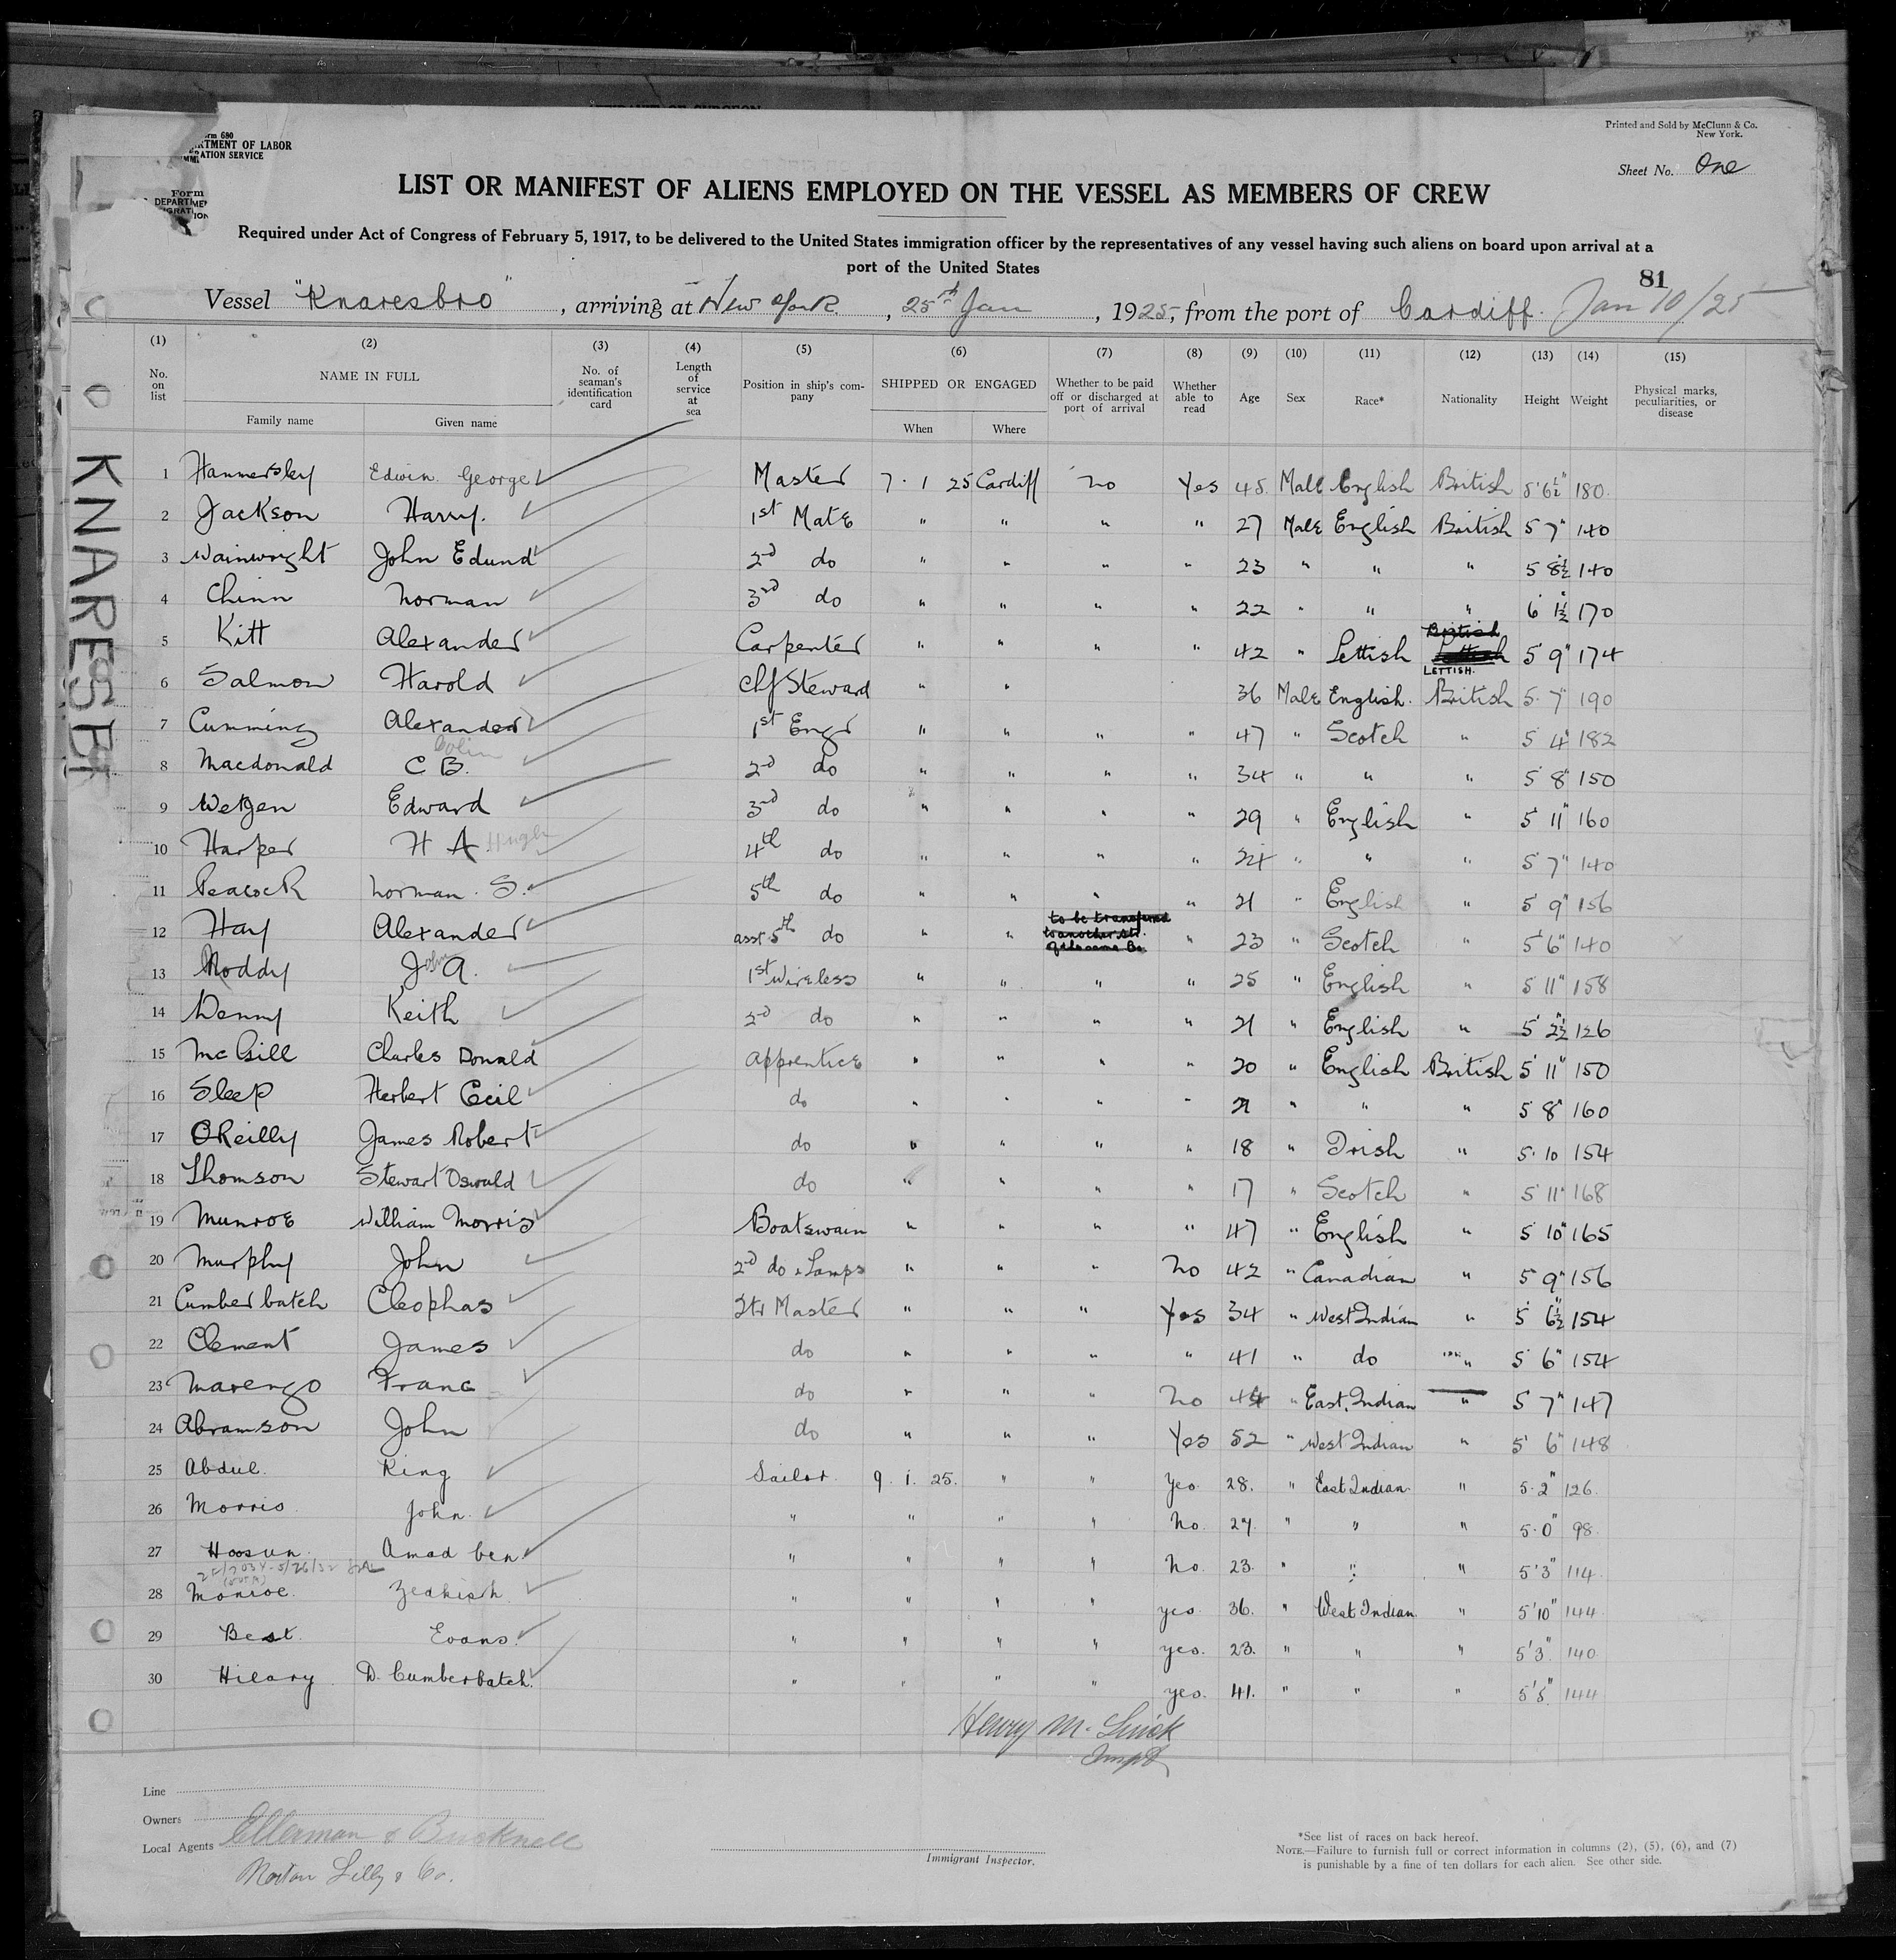 Printed and Sold by McClunn & Co.
New York.
rm 680
RTMENT OF LABOR
RATION SERVICE
Form
DEPARTMEN
Sheet No. One
LIST OR MANIFEST OF ALIENS EMPLOYED ON THE VESSEL AS MEMBERS OF CREW
Required under Act of Congress of February 5, 1917, to be delivered to the United States immigration officer by the representatives of any vessel having such aliens on board upon arrival at a
port of the United States
81
Vessel "Knaresbro", arriving at New York, 25th Jan, 1925, from the port of Cardiff. Jan 10/25
(1) (2) (3) (4) (5) (6) (7) (8) (9) (10) (11) (12) (13) (14) (15)
No. on list NAME IN FULL No. of seaman's identification card Length of service at sea Position in ship's company SHIPPED OR ENGAGED Whether to be paid off or discharged at port of arrival Whether able to read Age Sex Race* Nationality Height Weight Physical marks, peculiarities, or disease
Family name Given name When Where
KNARESBR
1 Hammersley Edwin George Master 7. 1 25 Cardiff No Yes 45 Male English British 5'6½" 180
2 Jackson Harry. 1st Mate " " " " 27 Male English British 5 7" 140
3 Wainwright John Edund 2nd do " " " " 23 " " " 5 8½ 140
4 Chinn Norman 3rd do " " " " 22 " " " 6 1½ 170
5 Kitt Alexander Carpenter " " " " 42 " Lettish British LETTISH. 5 9" 174
6 Salmon Harold Chf Steward " " 36 Male English. British 5. 7" 190
7 Cumming Alexander 1st Engr " " " " 47 " Scotch " 5 4" 182
8 Macdonald C B. Colin 2nd do " " " " 34 " " " 5 8" 150
9 Wetgen Edward 3rd do " " " " 29 " English " 5 11" 160
10 Harper H A Hugh 4th do " " " " 24 " " " 5 7" 140
11 Peacock Norman. S. 5th do " " " " 21 " English " 5 9" 156
12 Hay Alexander asst 5th do " " to be transferred to another str. of the same Co " 23 " Scotch " 5'6" 140
13 Roddy John A. 1st Wireless " " " " 25 " English " 5 11" 158
14 Denny Keith 2nd do " " " " 21 " English " 5' 2½ 126
15 McGill Charles Donald Apprentice " " " " 20 " English British 5' 11" 150
16 Sleep Herbert Cecil do " " " " 21 " " " 5 8" 160
17 OReilly James Robert do " " " " 18 " Irish " 5. 10 154
18 Thomson Stewart Oswald do " " " " 17 " Scotch " 5 11" 168
19 Munroe William Morris Boatswain " " " " 47 " English " 5 10" 165
20 Murphy John 2nd do & Lamps " " " No 42 " Canadian " 5 9" 156
21 Cumberbatch Cleophas Qtr Master " " " Yes 34 " West Indian " 5 6½ 154
22 Clement James do " " " " 41 " do " 5 6" 154
23 Marengo Franc do " " " No 44 " East Indian " 5 7" 147
24 Abramson John do " " " Yes 52 " West Indian " 5' 6" 148
25 Abdul. King Sailor. 9. 1. 25. " " Yes. 28. " East Indian " 5.2" 126.
26 Morris John. " " " " No. 27. " " " 5.0" 98.
27 Hoosun Amad ben " " " " No. 23. " " " 5'3" 114
28 Monroe. Zedkish. " " " " yes. 36. " West Indian. " 5'10" 144
29 Best. Evans. " " " " yes. 23. " " " 5'3" 140
30 Hilary D. Cumberbatch. " " " " yes. 41. " " " 5'5" 144
Henry M.
Inspt
Line
Owners
Local Agents Ellerman & Bucknell
Norton Lilly & Co.
Immigrant Inspector.
*See list of races on back hereof.
NOTE.—Failure to furnish full or correct information in columns (2), (5), (6), and (7)
is punishable by a fine of ten dollars for each alien. See other side.